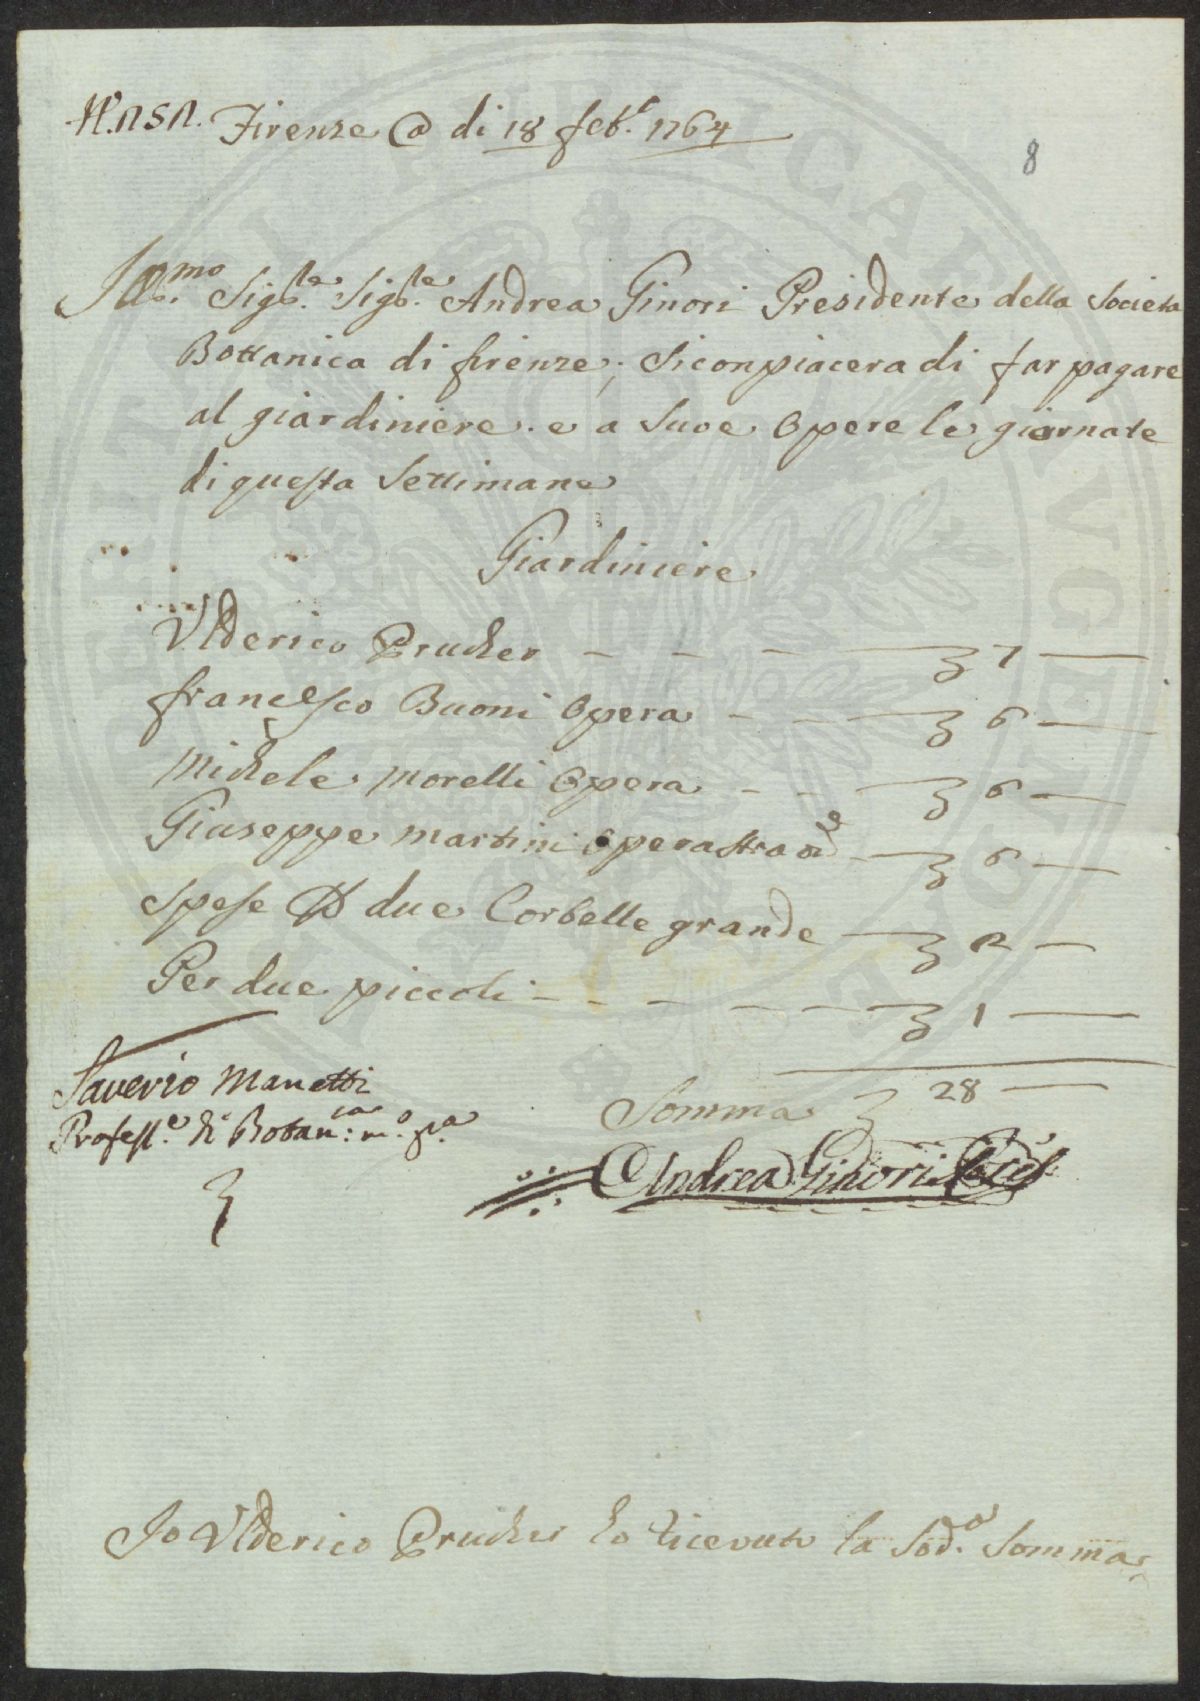 Firenze @ di 18 feb.r 1764
8
Ill.mo Sig.re Sig.re Andrea Ginori Presidente della Societa
Bottanica di firenze; Si conpiacera di far pagare
al giardiniere. e a Suoe Opere le giornate
di questa Settimana
Giardiniere
Ulderico Prucher - - - 7 —
francesco Buoni Opera - - 6 —
Michele Morelli Opera - - 6 —
Giuseppe Martini Opera 6 —
Spese due Corbelle grande 2 —
Per due piccoli - - - - - 1 —
Somma 28 —
Saverio Manetti
Profess.e di Botan.ca: m.o p.a
Andrea Ginori
Io Ulderico Prucher ho ricevuto la Sod.a Somma